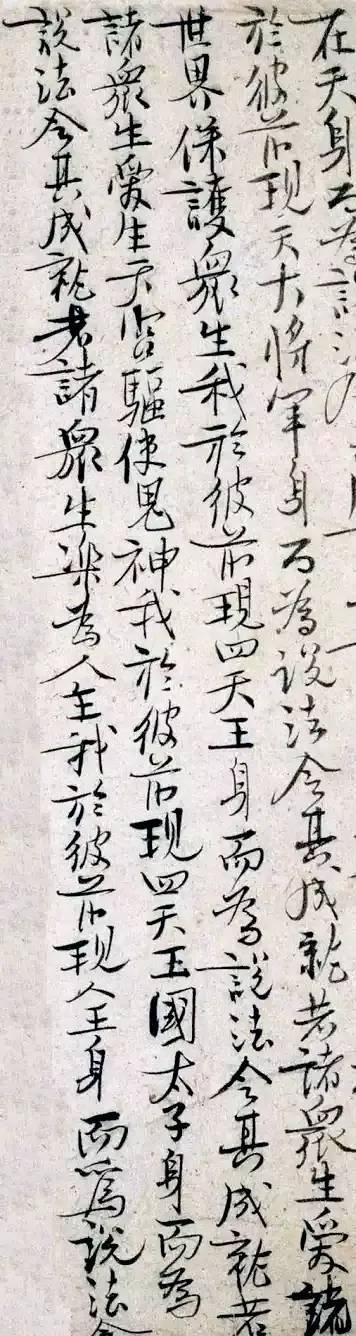 在天身而為說法令其
於彼前現天大將軍身而為說法令其成就若諸衆生愛諸
世界保護衆生我於彼前現四天王身而為說法令其成就若
諸衆生愛生天宮驅使鬼神我於彼前現四天王國太子身而為
說法令其成就若諸衆生樂為人王我於彼前現人王身而為說法令